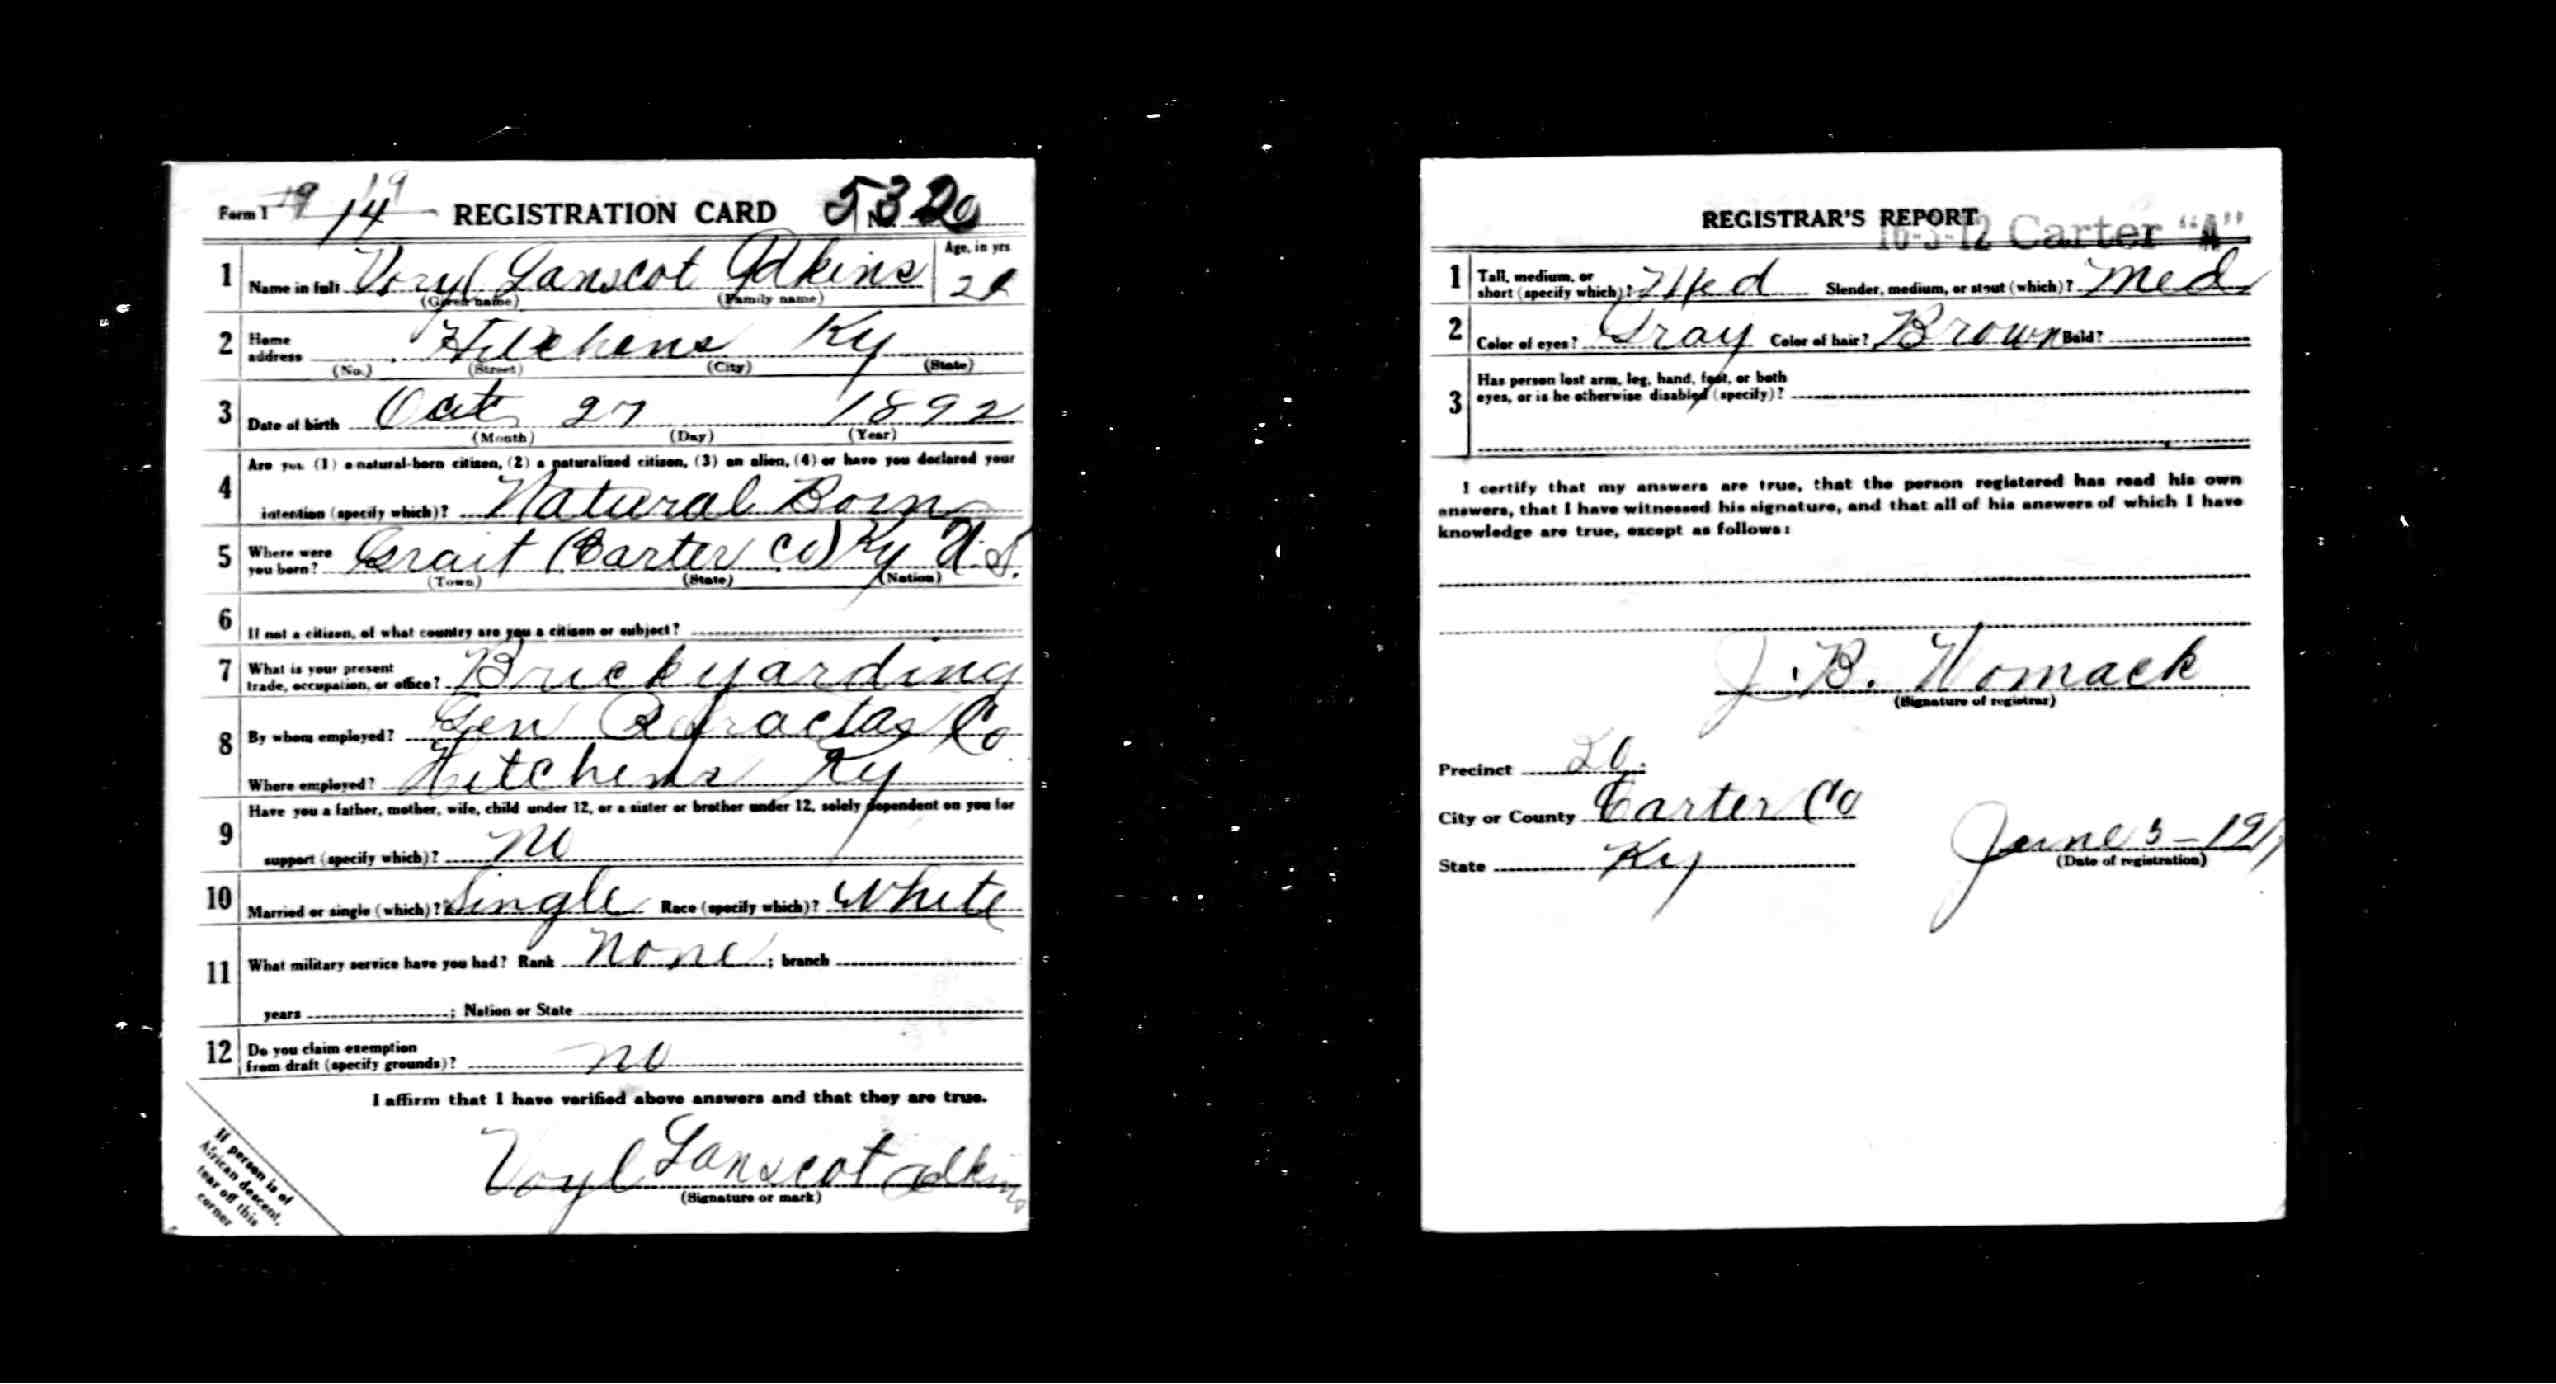 Form 1 14 REGISTRATION CARD No. 53 20
1 Name in full Voryl Lanscot Adkins Age, in yrs
(Given name) (Family name)
2 Home address Hitchens Ky
(No.) (Street) (City) (State)
3 Date of birth Oct 27 1892
(Month) (Day) (Year)
4 Are you (1) a natural-born citizen, (2) a naturalized citizen, (3) an alien, (4) or have you declared your
intention (specify which)? Natural Born
5 Where were you born? (Carter Co) Ky U.S.
(Town) (State) (Nation)
6 If not a citizen, of what country are you a citizen or subject?
7 What is your present trade, occupation, or office? Brickyarding
8 By whom employed? Gen Refractas Co
Where employed? Hitchens Ky
9 Have you a father, mother, wife, child under 12, or a sister or brother under 12, solely dependent on you for
support (specify which)? No
10 Married or single (which)? Single Race (specify which)? White
11 What military service have you had? Rank None ; branch
years ; Nation or State
12 Do you claim exemption from draft (specify grounds)? No
I affirm that I have verified above answers and that they are true.
Voyl Lanscot Adkins
(Signature or mark)
If person is of
African descent,
tear off this
corner
REGISTRAR'S REPORT
16-3-12 Carter "A"
1 Tall, medium, or short (specify which)? Med Slender, medium, or stout (which)? Med
2 Color of eyes? Gray Color of hair? Brown Bald?
3 Has person lost arm, leg, hand, foot, or both
eyes, or is he otherwise disabled (specify)?
I certify that my answers are true, that the person registered has read his own
answers, that I have witnessed his signature, and that all of his answers of which I have
knowledge are true, except as follows:
J. B. Womack
(Signature of registrar)
Precinct 20
City or County Carter Co
State Ky June 5-1917
(Date of registration)